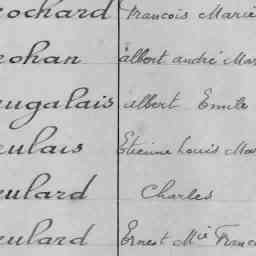 ochard François Marie
rohan Albert André Mar
ugalais Albert Emile
eulais Etienne Louis Mar
eulard Charles
eulard Ernest Mie Franc